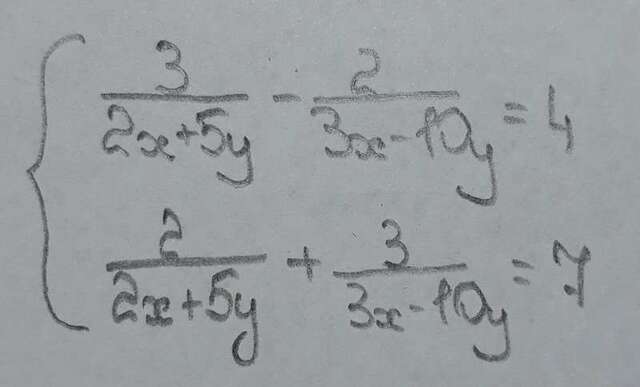 3/(2x+5y) - 2/(3x-10y) = 4
2/(2x+5y) + 3/(3x-10y) = 7